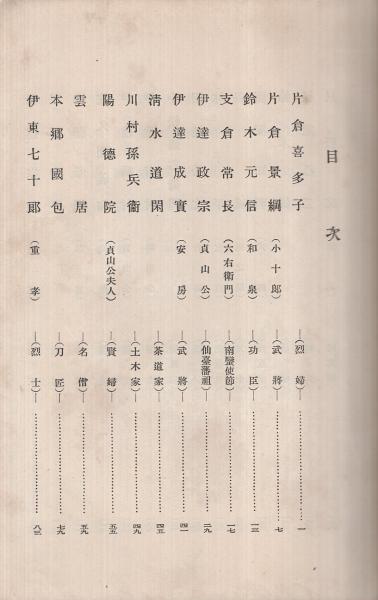 目次
片倉喜多子 ―(烈婦)― 一
片倉景綱 (小十郎) ―(武將)― 七
鈴木元信 (和泉) ―(功臣)― 一三
支倉常長 (六右衞門) ―(南蠻使節)― 一七
伊達政宗 (貞山公) ―(仙臺藩祖)― 二九
伊達成實 (安房) ―(武將)― 四一
清水道閑 ―(茶道家)― 四五
川村孫兵衞 ―(土木家)― 四九
陽德院 (貞山公夫人) ―(賢婦)― 五五
雲居 ―(名僧)― 五九
本鄕國包 ―(刀匠)― 七九
伊東七十郞 (重孝) ―(烈士)― 八三